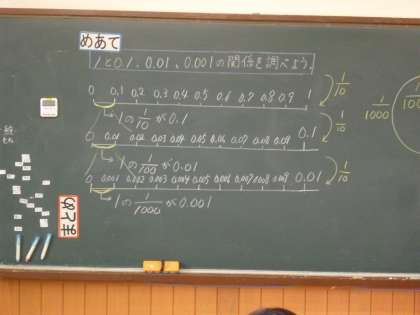 めあて
1と0.1、0.01、0.001の関係を調べよう。
0 0.1 0.2 0.3 0.4 0.5 0.6 0.7 0.8 0.9 1
1/10
1の1/10が0.1
1/1000
1/10
0 0.01 0.02 0.03 0.04 0.05 0.06 0.07 0.08 0.09 0.1
1の1/100が0.01
1/10
0 0.001 0.002 0.003 0.004 0.005 0.006 0.007 0.008 0.009 0.01
1の1/1000が0.001
まとめ